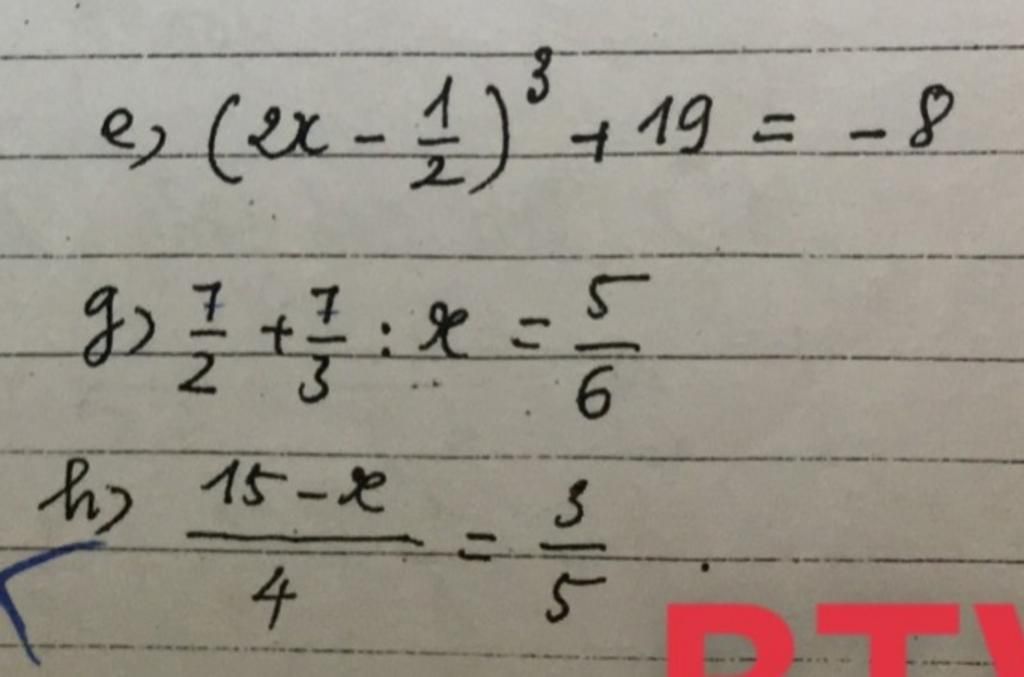 e) (2x - 1/2)³ + 19 = -8
g) 7/2 + 7/3 : x = 5/6
h) (15 - x)/4 = 3/5 .